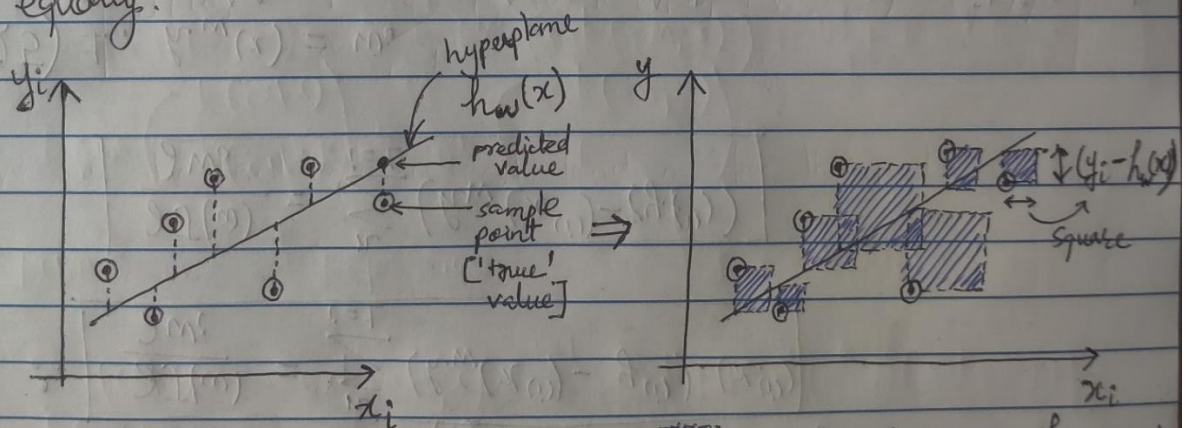 equality.
yᵢ
hyperplane
h_w(x)
predicted
value
sample
point
['true'
value]
xᵢ
⇒
y
(yᵢ - h_w(x))
square
xᵢ